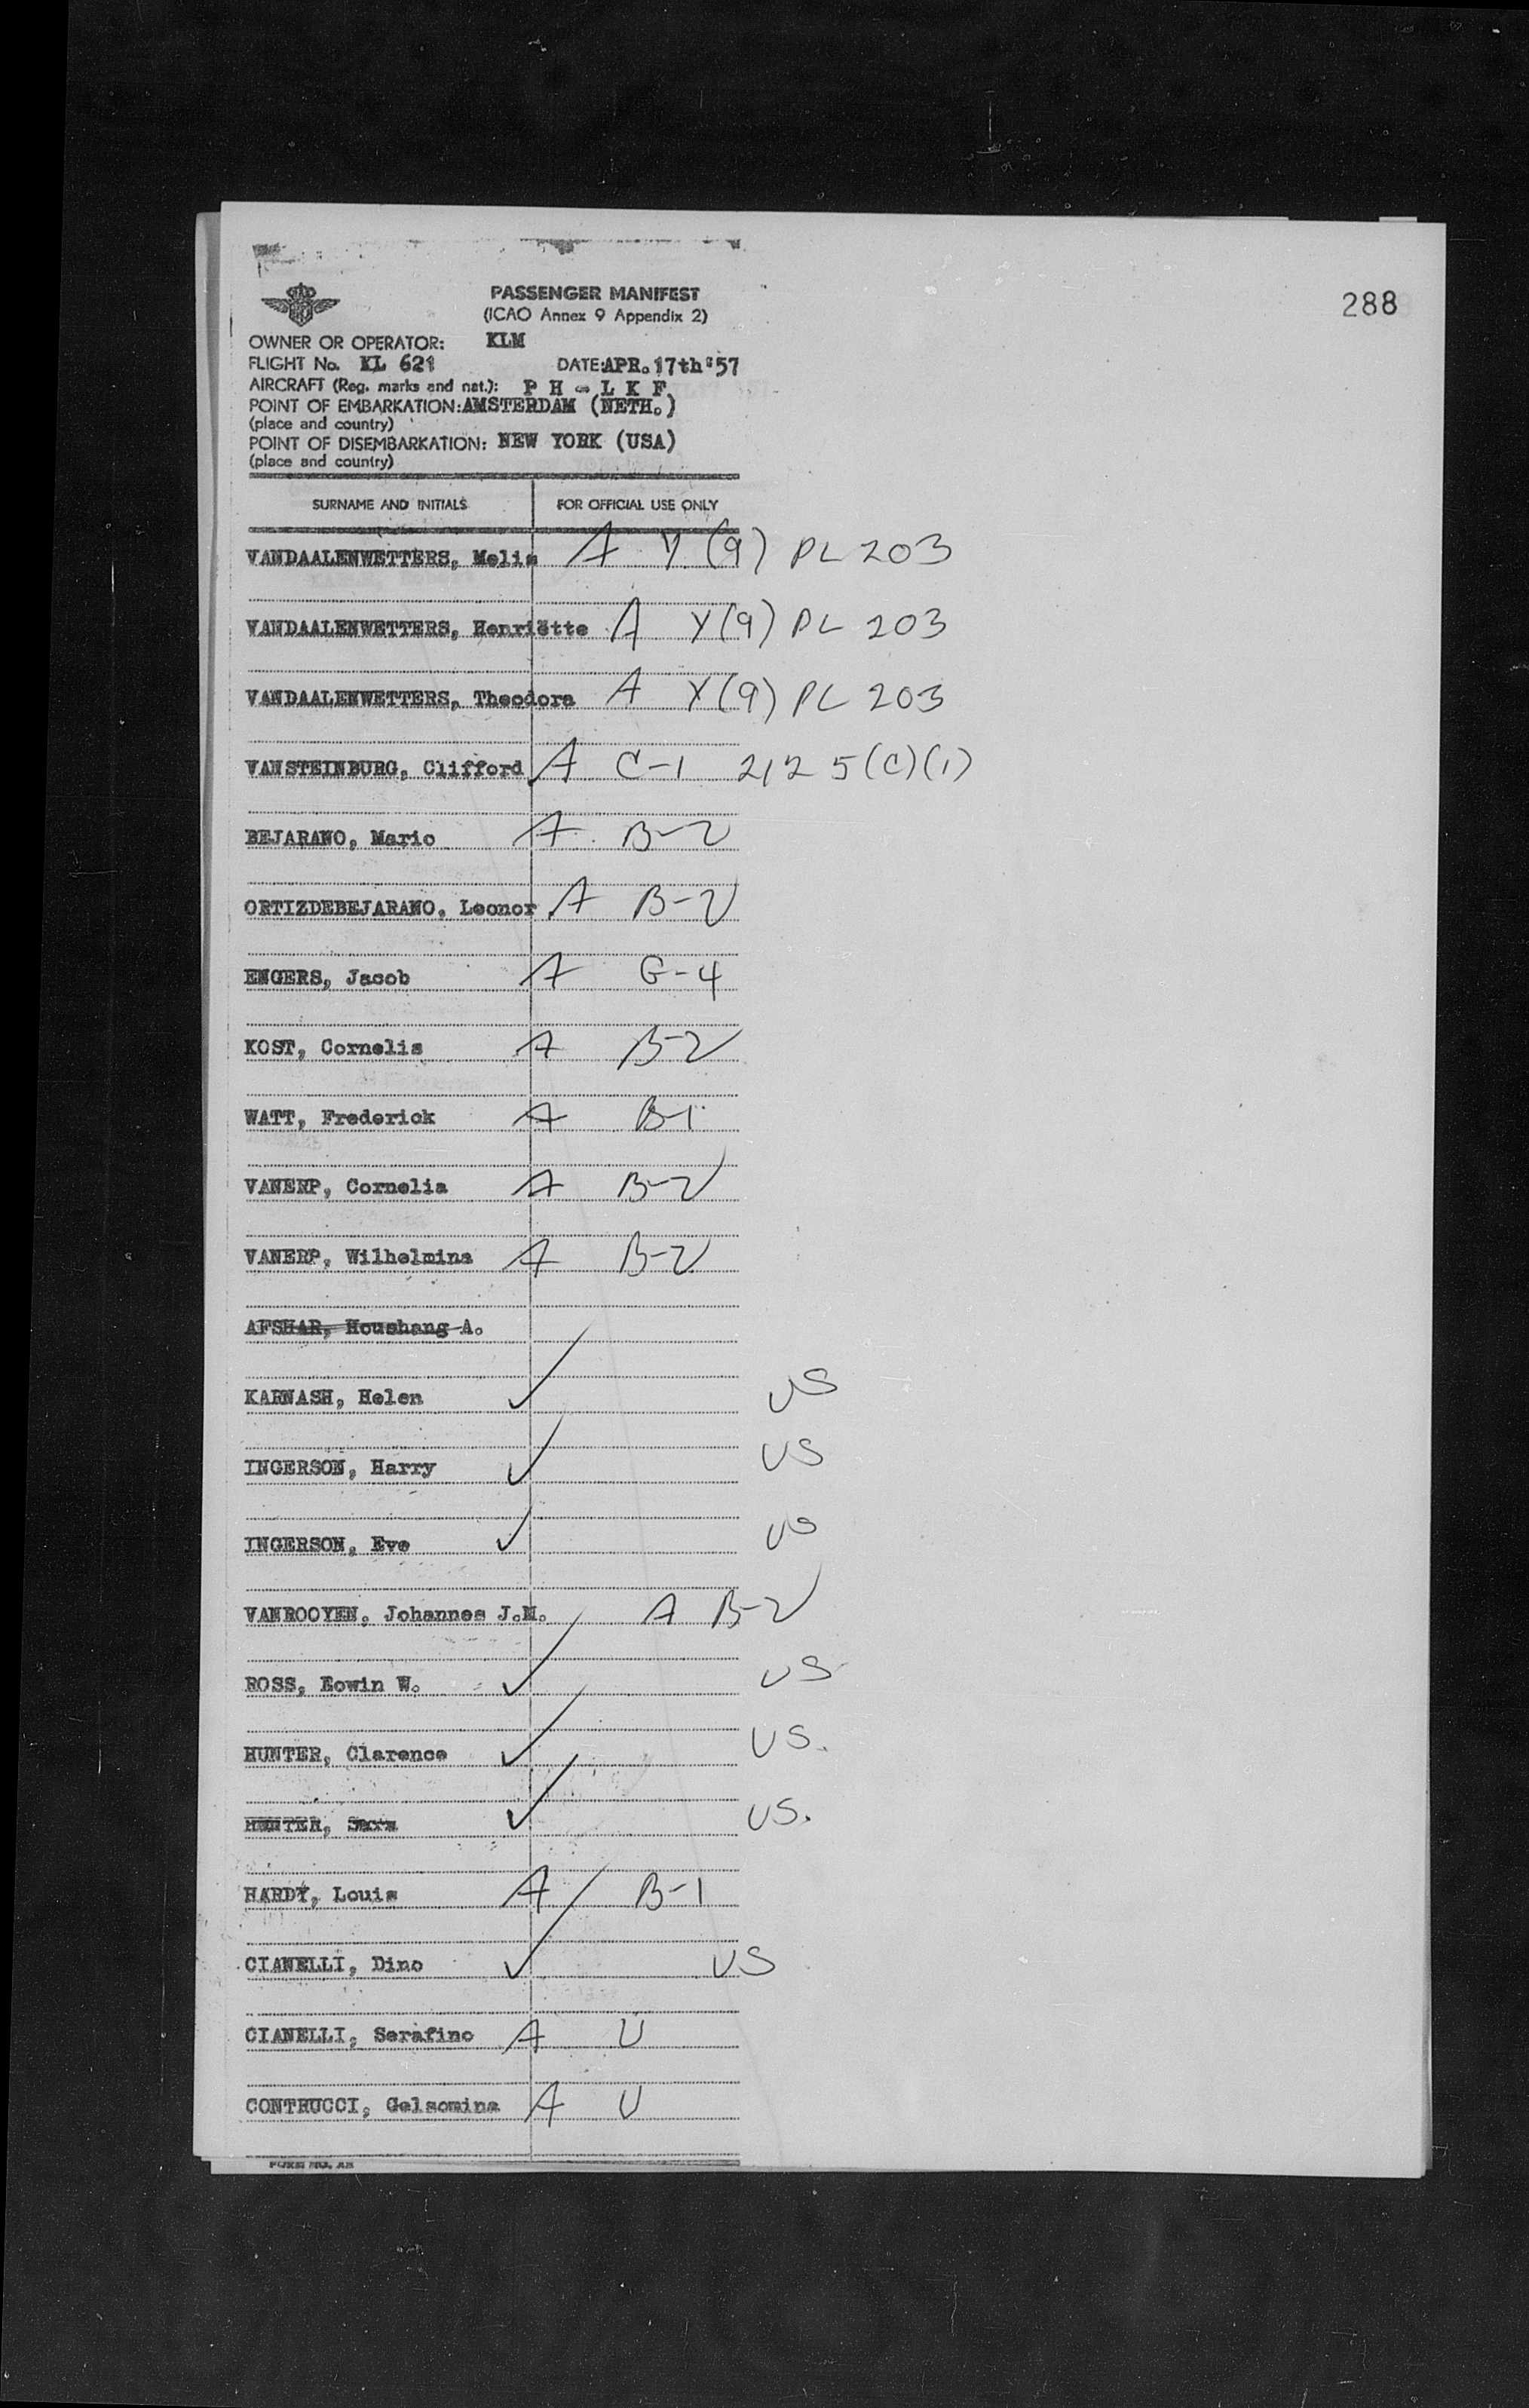 288
PASSENGER MANIFEST
(ICAO Annex 9 Appendix 2)
OWNER OR OPERATOR: KLM
FLIGHT No. KL 621 DATE: APR. 17th '57
AIRCRAFT (Reg. marks and nat.): P H - L K F
POINT OF EMBARKATION: AMSTERDAM (NETH.)
(place and country)
POINT OF DISEMBARKATION: NEW YORK (USA)
(place and country)
SURNAME AND INITIALS FOR OFFICIAL USE ONLY
VANDAALENWETTERS, Melis A Y (9) PL 203
VANDAALENWETTERS, Henriëtte A Y (9) PL 203
VANDAALENWETTERS, Theodora A Y (9) PL 203
VANSTEINBURG, Clifford A C-1 212 5(c)(1)
BEJARANO, Mario A B-2
ORTIZDEBEJARANO, Leonor A B-2
ENGERS, Jacob A G-4
KOST, Cornelis A B-2
WATT, Frederick A B-1
VANERP, Cornelia A B-2
VANERP, Wilhelmina A B-2
AFSHAR, Houshang A.
KARNASH, Helen ✓ US
INGERSON, Harry ✓ US
INGERSON, Eve ✓ US
VANROOYEN, Johannes J.M. A B-2
ROSS, Eowin W. ✓ US
HUNTER, Clarence ✓ US.
HUNTER, Sara ✓ US.
HARDY, Louis A B-1
CIANELLI, Dino ✓ US
CIANELLI, Serafino A U
CONTRUCCI, Gelsomina A U